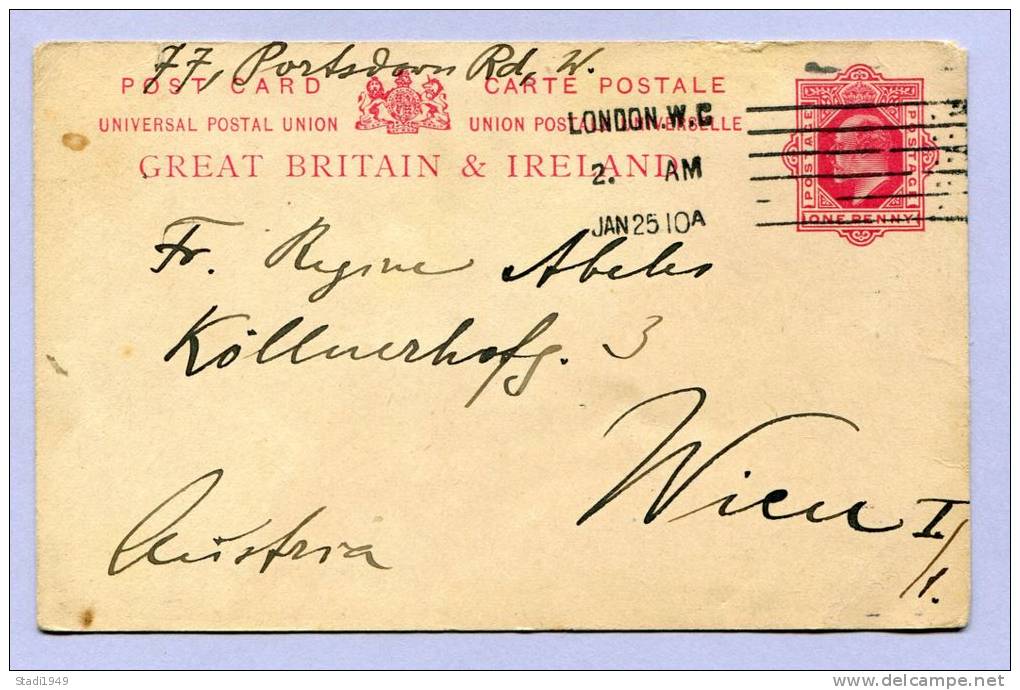 77, Portsdown Rd, W.
POST CARD CARTE POSTALE
UNIVERSAL POSTAL UNION UNION POSTALE UNIVERSELLE
GREAT BRITAIN & IRELAND
LONDON W.C
2. AM
JAN 25 10A
POSTAGE POSTAGE
ONE PENNY
Fr. Regine Abeles
Köllnerhofg. 3
Wien I.
/1.
Austria
Stadi1949
delcampe.net